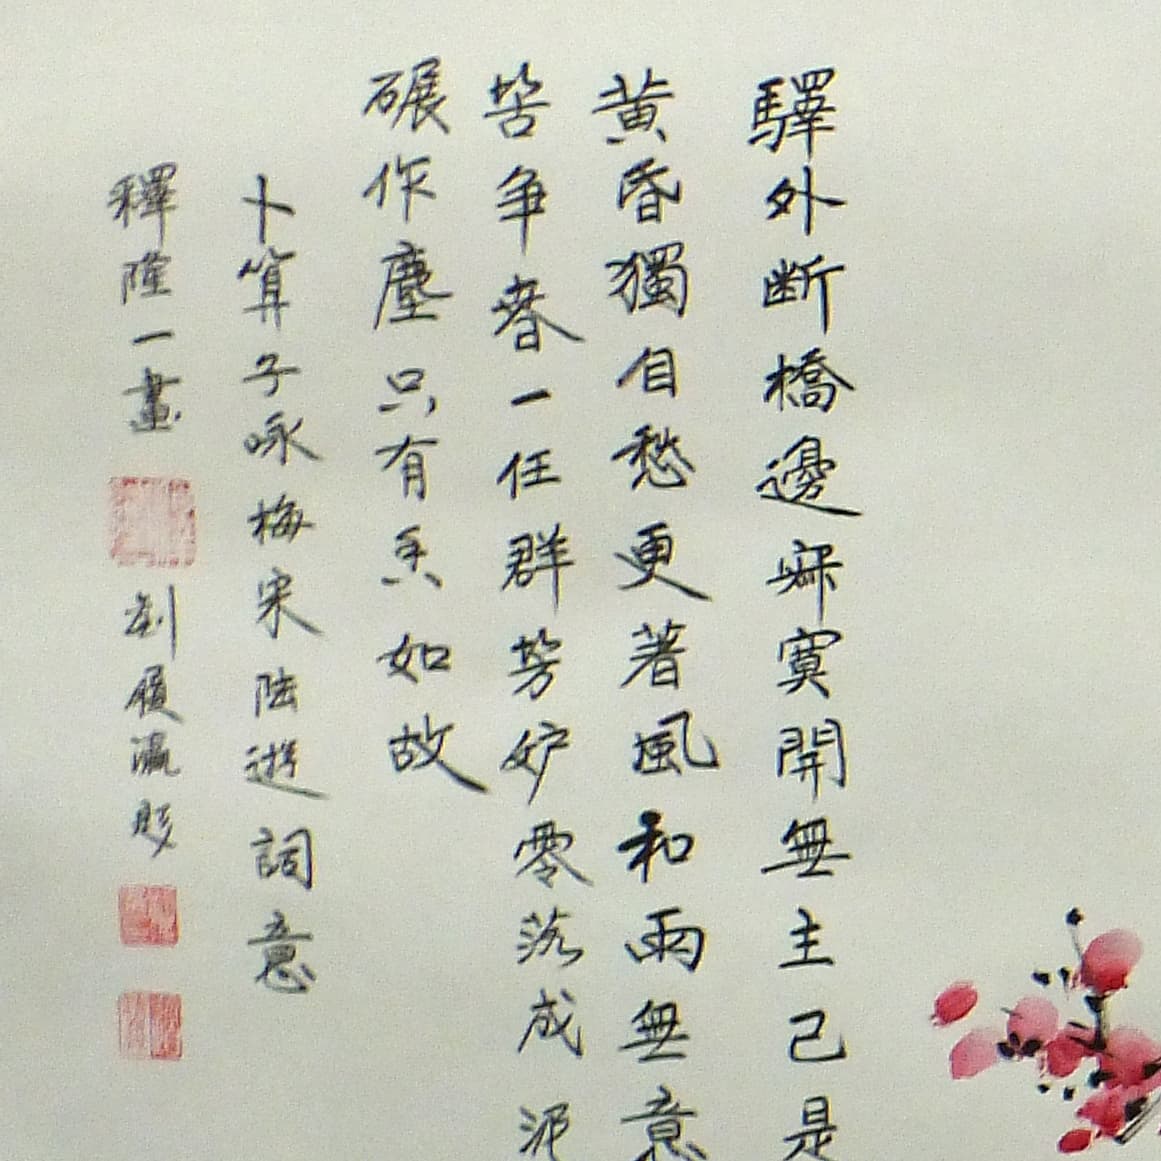 驛外断橋邊寂寞開無主己是
黄昏獨自愁更著風和雨無意
苦争春一任群芳妒零落成泥
碾作塵只有香如故
卜算子咏梅宋陸遊詞意
釋隆一畫